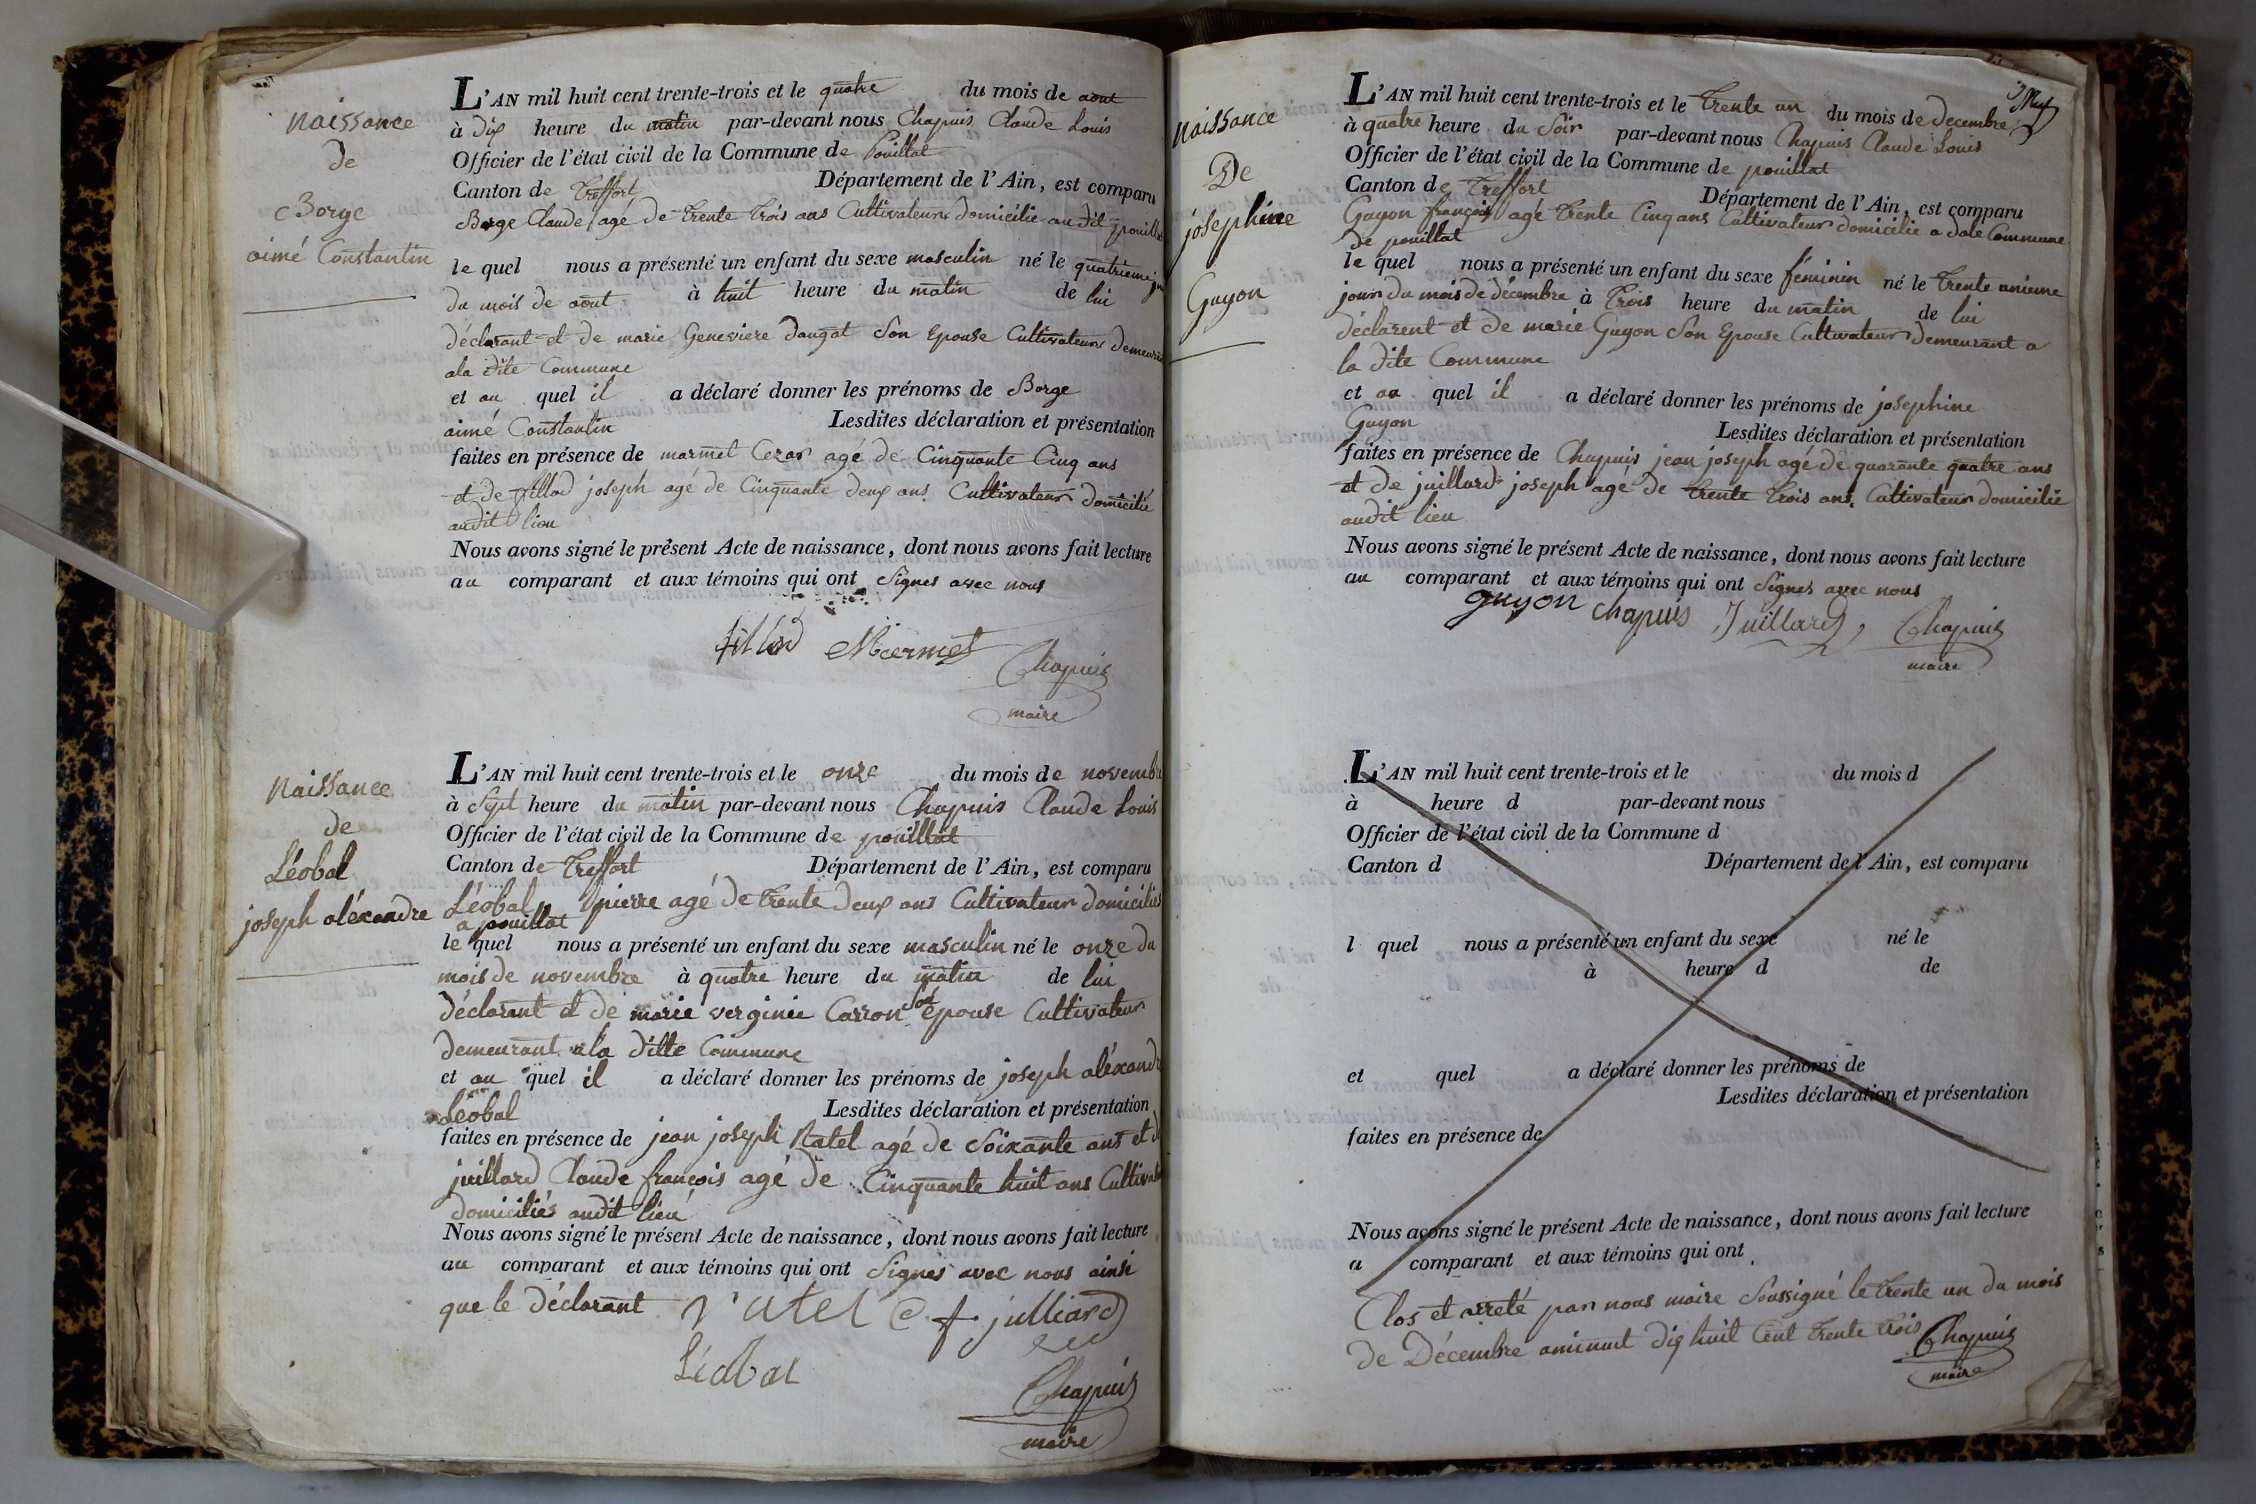 naissance
de
Borge
aimé Constantin
L'AN mil huit cent trente-trois et le quatre du mois de aout
à dix heure du matin par-devant nous Chapuis Claude Louis
Officier de l'état civil de la Commune de Pouillat
Canton de Treffort Département de l'Ain, est comparu
Borge Claude agé de trente trois ans Cultivateur domicilié au dit pouillat
le quel nous a présenté un enfant du sexe masculin né le quatrieme
du mois de aout à huit heure du matin de lui
déclarant et de marie Geneviere daugat Son Epouse Cultivateur
ala dite Commune
et au quel il a déclaré donner les prénoms de Borge
aimé Constantin Lesdites déclaration et présentation
faites en présence de marmet Cezar agé de Cinquante Cinq ans
et de fillod joseph agé de Cinquante deux ans Cultivateur domicilié
audit lieu
Nous avons signé le présent Acte de naissance, dont nous avons fait lecture
au comparant et aux témoins qui ont Signes avec nous
fillod Mermet Chapuis
maire
Naissance
de
Léobal
joseph aléxandre
L'AN mil huit cent trente-trois et le onze du mois de novembre
à Sept heure du matin par-devant nous Chapuis Claude Louis
Officier de l'état civil de la Commune de pouillat
Canton de Treffort Département de l'Ain, est comparu
Léobal pierre agé de trente deux ans Cultivateur domiciliés
a pouillat
le quel nous a présenté un enfant du sexe masculin né le onze du
mois de novembre à quatre heure du matin de lui
déclarant et de marie verginie Carron Son épouse Cultivateur
demeurant a la ditte Commune
et au quel il a déclaré donner les prénoms de joseph aléxandre
Léobal Lesdites déclaration et présentation
faites en présence de jean joseph Natel agé de Soixante ans et de
juillard Claude françois agé de Cinquante huit ans
domiciliés audit lieu
Nous avons signé le présent Acte de naissance, dont nous avons fait lecture
au comparant et aux témoins qui ont Signés avec nous ainsi
que le déclarant natel c. f. julliard
Léobal
Chapuis
maire
Naissance
De
josephine
Guyon
L'AN mil huit cent trente-trois et le trente un du mois de decembre
à quatre heure du Soir par-devant nous Chapuis Claude Louis
Officier de l'état civil de la Commune de pouillat
Canton de Treffort Département de l'Ain, est comparu
Guyon françois agé trente Cinq ans Cultivateur domicilié a dole Commune
de pouillat
le quel nous a présenté un enfant du sexe féminin né le trente unieme
jour du mois de décembre à trois heure du matin de lui
déclarent et de marie Guyon Son Epouse Cultivateur demeurant a
la dite Commune
et au quel il a déclaré donner les prénoms de josephine
Guyon Lesdites déclaration et présentation
faites en présence de Chapuis jean joseph agé de quarante quatre ans
et de juillard joseph agé de trente trois ans Cultivateur domicilié
audit lieu
Nous avons signé le présent Acte de naissance, dont nous avons fait lecture
au comparant et aux témoins qui ont Signes avec nous
guyon chapuis Juillard, Chapuis
maire
L'AN mil huit cent trente-trois et le du mois d
à heure d par-devant nous
Officier de l'état civil de la Commune d
Canton d Département de l'Ain, est comparu
l quel nous a présenté un enfant du sexe né le
à heure d de
et quel a déclaré donner les prénoms de
Lesdites déclaration et présentation
faites en présence de
Nous avons signé le présent Acte de naissance, dont nous avons fait lecture
a comparant et aux témoins qui ont
Clos et arreté par nous maire Soussigné le trente un du mois
de Décembre aminuit dix huit Cent trente trois Chapuis
maire